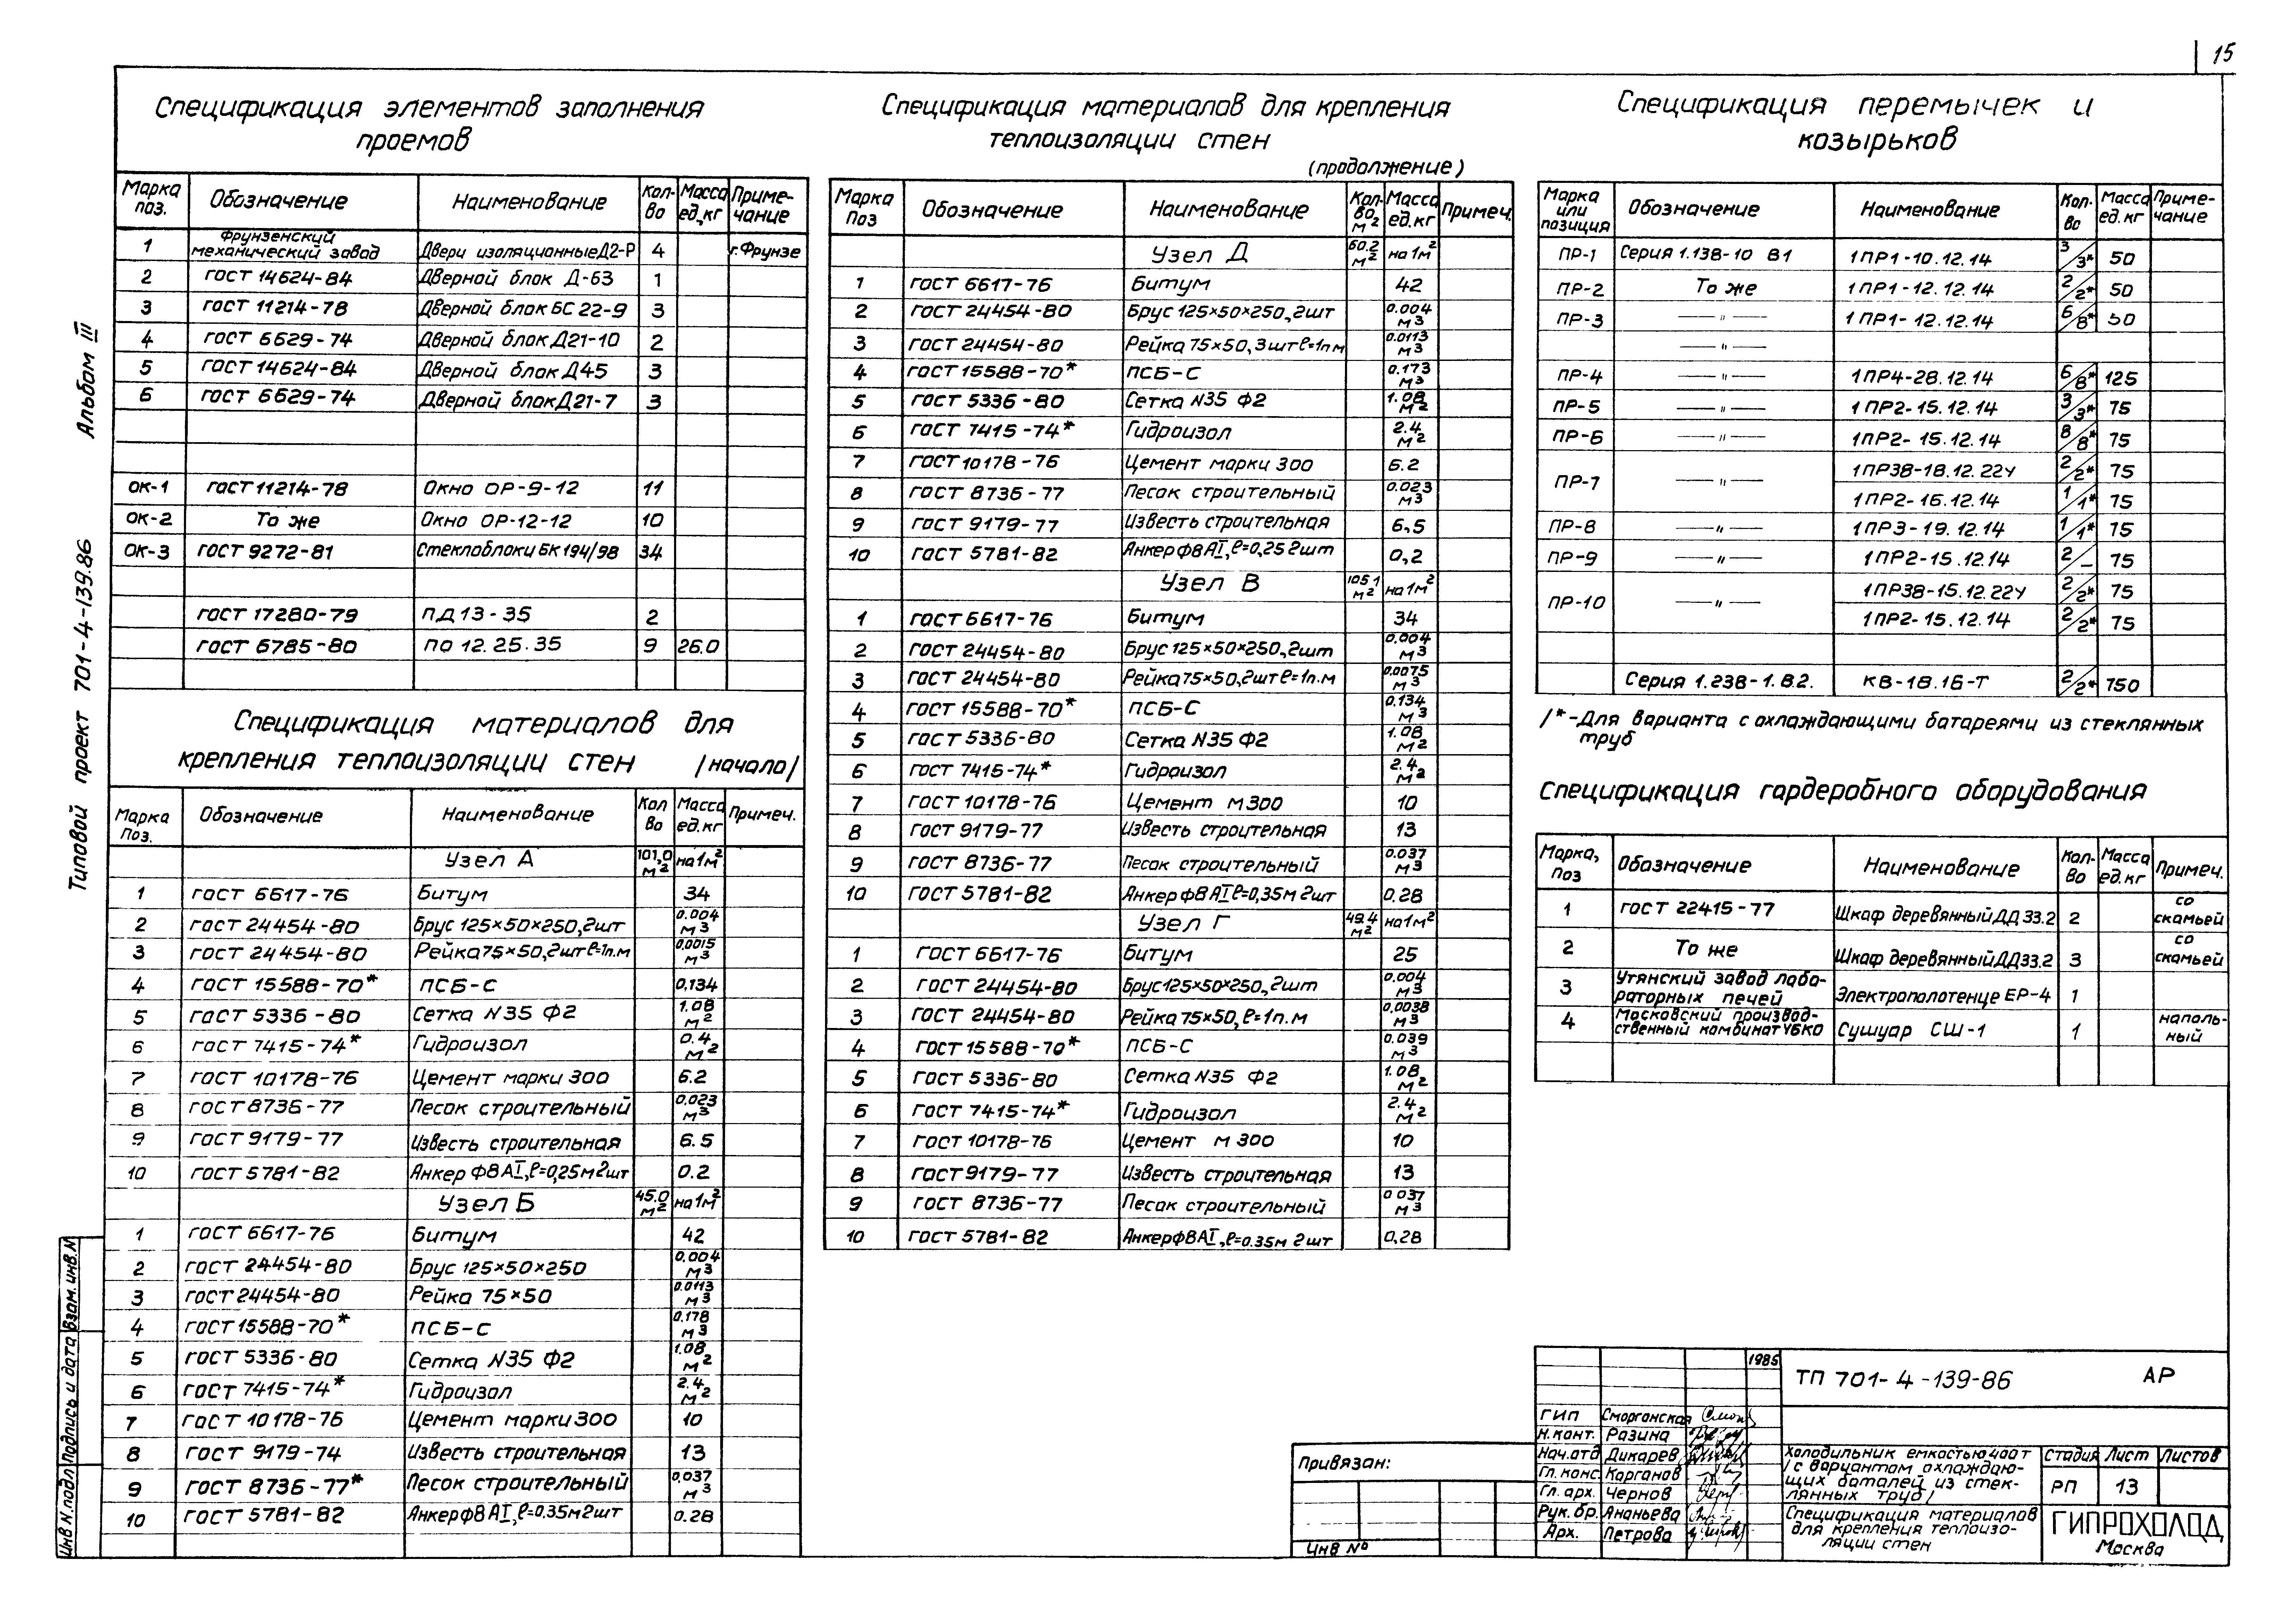 15
Альбом III
Типовой проект 701-4-139.86
Спецификация элементов заполнения
проемов
Марка поз. Обозначение Наименование Кол-во Масса ед,кг Примечание
1 Фрунзенский механический завод Двери изоляционные Д2-Р 4 г.Фрунзе
2 ГОСТ 14624-84 Дверной блок Д-63 1
3 ГОСТ 11214-78 Дверной блок БС 22-9 3
4 ГОСТ 6629-74 Дверной блок Д21-10 2
5 ГОСТ 14624-84 Дверной блок Д45 3
6 ГОСТ 6629-74 Дверной блок Д21-7 3
ОК-1 ГОСТ 11214-78 Окно ОР-9-12 11
ОК-2 То же Окно ОР-12-12 10
ОК-3 ГОСТ 9272-81 Стеклоблоки БК 194/98 34
ГОСТ 17280-79 ПД 13-35 2
ГОСТ 6785-80 ПО 12.25.35 9 26.0
Спецификация материалов для
крепления теплоизоляции стен /начало/
Марка Поз. Обозначение Наименование Кол во Масса ед.кг Примеч.
Узел А 101,0 м2 на 1м2
1 ГОСТ 6617-76 Битум 34
2 ГОСТ 24454-80 Брус 125×50×250,2шт 0.004 м3
3 ГОСТ 24454-80 Рейка 75×50,2шт ℓ=1п.м 0,0015 м3
4 ГОСТ 15588-70* ПСБ-С 0,134
5 ГОСТ 5336-80 Сетка N35 Ф2 1.08 м2
6 ГОСТ 7415-74* Гидроизол 0.4 м2
7 ГОСТ 10178-76 Цемент марки 300 6.2
8 ГОСТ 8736-77 Песок строительный 0,023 м3
9 ГОСТ 9179-77 Известь строительная 6.5
10 ГОСТ 5781-82 Анкер Ф8 АI,ℓ=0,25м 2шт 0.2
Узел Б 45.0 м2 на 1м2
1 ГОСТ 6617-76 Битум 42
2 ГОСТ 24454-80 Брус 125×50×250 0,004 м3
3 ГОСТ 24454-80 Рейка 75×50 0.0113 м3
4 ГОСТ 15588-70* ПСБ-С 0.178 м3
5 ГОСТ 5336-80 Сетка N35 Ф2 1.08 м2
6 ГОСТ 7415-74* Гидроизол 2.4 м2
7 ГОСТ 10178-76 Цемент марки 300 10
8 ГОСТ 9179-74 Известь строительная 13
9 ГОСТ 8736-77* Песок строительный 0,037 м3
10 ГОСТ 5781-82 Анкер Ф8 АI,ℓ=0.35м 2шт 0.28
Спецификация материалов для крепления
теплоизоляции стен
(продолжение)
Марка Поз Обозначение Наименование Кол-во, м2 Масса ед.кг Примеч.
Узел Д 60.2 м2 на 1м2
1 ГОСТ 6617-76 Битум 42
2 ГОСТ 24454-80 Брус 125×50×250,2шт 0.004 м3
3 ГОСТ 24454-80 Рейка 75×50,3шт ℓ=1п м 0.0113 м3
4 ГОСТ 15588-70* ПСБ-С 0.173 м3
5 ГОСТ 5336-80 Сетка N35 Ф2 1.08 м2
6 ГОСТ 7415-74* Гидроизол 2.4 м2
7 ГОСТ 10178-76 Цемент марки 300 6.2
8 ГОСТ 8736-77 Песок строительный 0.023 м3
9 ГОСТ 9179-77 Известь строительная 6,5
10 ГОСТ 5781-82 Анкер Ф8 АI,ℓ=0,25 2шт 0,2
Узел В 105.1 м2 на 1м2
1 ГОСТ 6617-76 Битум 34
2 ГОСТ 24454-80 Брус 125×50×250,2шт 0.004 м3
3 ГОСТ 24454-80 Рейка 75×50,2шт ℓ=1п.м 0,0075 м3
4 ГОСТ 15588-70* ПСБ-С 0.134 м3
5 ГОСТ 5336-80 Сетка N35 Ф2 1.08 м2
6 ГОСТ 7415-74* Гидроизол 2.4 м2
7 ГОСТ 10178-76 Цемент М300 10
8 ГОСТ 9179-77 Известь строительная 13
9 ГОСТ 8736-77 Песок строительный 0.037 м3
10 ГОСТ 5781-82 Анкер Ф8 АI ℓ=0,35м 2шт 0.28
Узел Г 49.4 м2 на 1м2
1 ГОСТ 6617-76 Битум 25
2 ГОСТ 24454-80 Брус 125×50×250,2шт 0.004 м3
3 ГОСТ 24454-80 Рейка 75×50, ℓ=1п.м 0,0038 м3
4 ГОСТ 15588-70* ПСБ-С 0.039 м3
5 ГОСТ 5336-80 Сетка N35 Ф2 1.08 м2
6 ГОСТ 7415-74* Гидроизол 2.4 м2
7 ГОСТ 10178-76 Цемент М 300 10
8 ГОСТ 9179-77 Известь строительная 13
9 ГОСТ 8736-77 Песок строительный 0 037 м3
10 ГОСТ 5781-82 Анкер Ф8 АI,ℓ=0.35м 2шт 0,28
Спецификация перемычек и
козырьков
Марка или позиция Обозначение Наименование Кол-во Масса ед.кг Примечание
ПР-1 Серия 1.138-10 В1 1ПР1-10.12.14 3/3* 50
ПР-2 То же 1ПР1-12.12.14 2/2* 50
ПР-3 —"— 1ПР1-12.12.14 6/8* 50
—"—
ПР-4 —"— 1ПР4-28.12.14 6/8* 125
ПР-5 —"— 1ПР2-15.12.14 3/3* 75
ПР-6 —"— 1ПР2-15.12.14 8/8* 75
ПР-7 —"— 1ПР38-18.12.22У 2/2* 75
1ПР2-16.12.14 1/1* 75
ПР-8 —"— 1ПР3-19.12.14 1/1* 75
ПР-9 —"— 1ПР2-15.12.14 2/– 75
ПР-10 —"— 1ПР38-15.12.22У 2/2* 75
1ПР2-15.12.14 2/2* 75
Серия 1.238-1.В.2. КВ-18.16-Т 2/2* 750
/*-Для варианта с охлаждающими батареями из стеклянных
труб
Спецификация гардеробного оборудования
Марка, Поз Обозначение Наименование Кол-во Масса ед.кг Примеч.
1 ГОСТ 22415-77 Шкаф деревянный ДД 33.2 2 со скамьей
2 То же Шкаф деревянный ДД33.2 3 со скамьей
3 Утянский завод лабораторных печей Электрополотенце ЕР-4 1
4 Московский производственный комбинат УБКО Сушуар СШ-1 1 напольный
1985
ТП 701-4-139-86 АР
ГИП Сморганская
Н.конт. Разина
Нач.отд Дикарев
Гл.конс Карганов
Гл.арх. Чернов
Рук.бр. Ананьева
Арх. Петрова
Холодильник емкостью 400 т
/с вариантом охлаждаю-
щих баталей из стек-
лянных труб/
Стадия Лист Листов
РП 13
Спецификация материалов
для крепления теплоизо-
ляции стен
ГИПРОХОЛОД
Москва
Привязан:
Инв №
Взам. инв. N
Подпись и дата
Инв N.подл